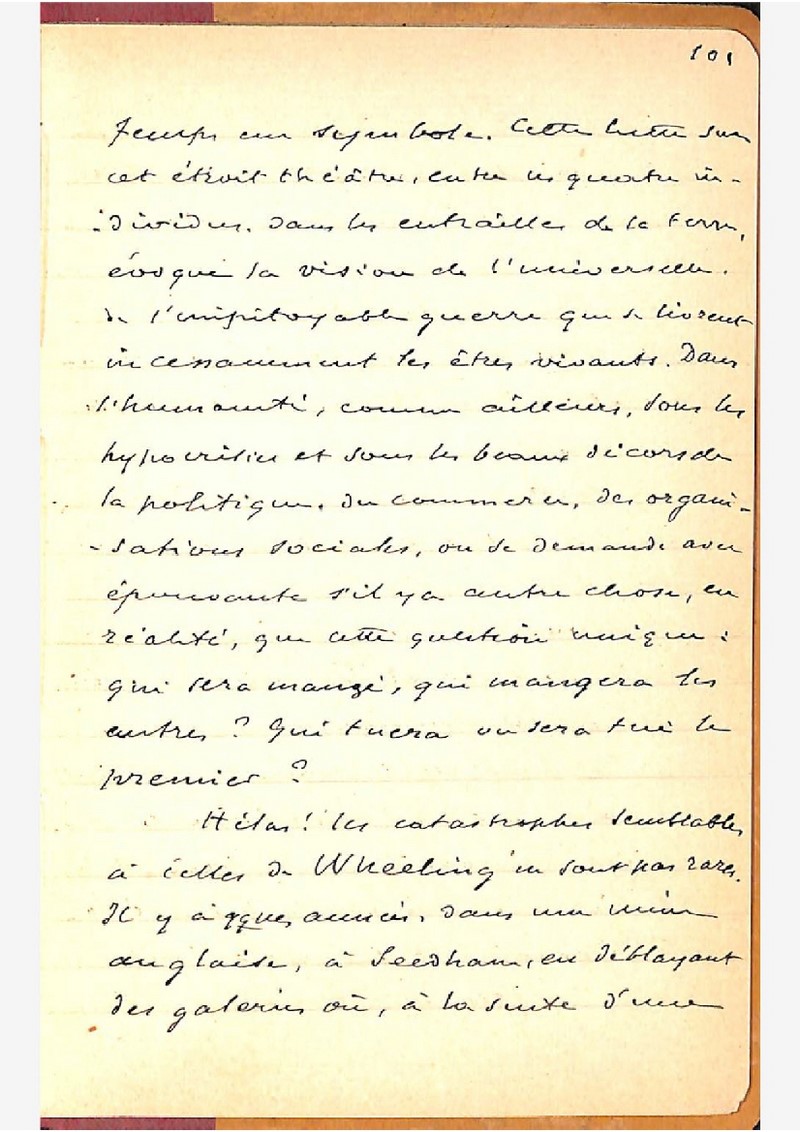 101
temps un symbole. Cette lutte sur
cet étroit théâtre, entre les quatre in-
-dividus, dans les entrailles de la terre,
évoque la vision de l'universelle,
de l'impitoyable guerre que se livrent
incessamment les êtres vivants. Dans
l'humanité, comme ailleurs, sous les
hypocrisies et sous les beaux décors de
la politique, du commerce, des organi-
-sations sociales, on se demande avec
épouvante s'il y a autre chose, en
réalité, que cette question unique :
qui sera mangé, qui mangera les
autres ? Qui tuera ou sera tué le
premier ?
Hélas ! les catastrophes semblables
à celles de Wheeling ne sont pas rares.
Il y a qques années, dans une mine
anglaise, à Seedham, en déblayant
des galeries où, à la suite d'une